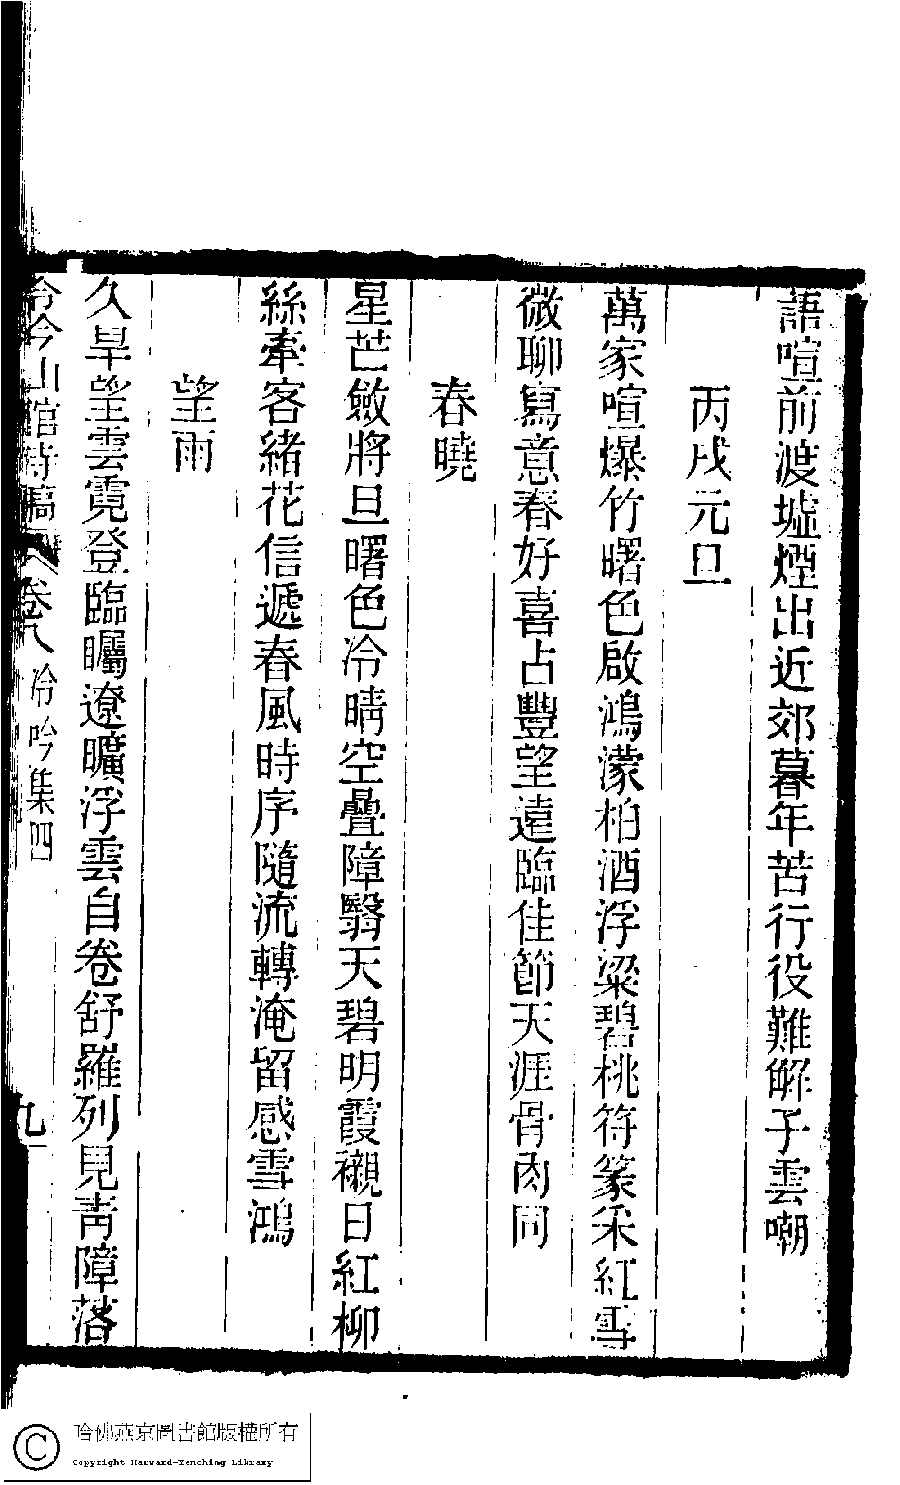 語喧前渡墟煙出近郊暮年苦行役難解子雲嘲
丙戌元旦
萬家喧爆竹曙色啟鴻濛柏酒浮粱碧桃符篆采紅雪
微聊寫意春好喜占豐望遠臨佳節天涯骨肉同
春曉
星芒斂將旦曙色冷晴空疊障翳天碧明霞襯日紅柳
絲牽客緒花信遞春風時序隨流轉淹留感雪鴻
望雨
久旱望雲霓登臨矚遼曠浮雲自卷舒羅列見青障落
冷今山館詩稿 卷八 冷吟集四 九
哈佛燕京圖書館版權所有
Copyright Harvard-Yenching Library